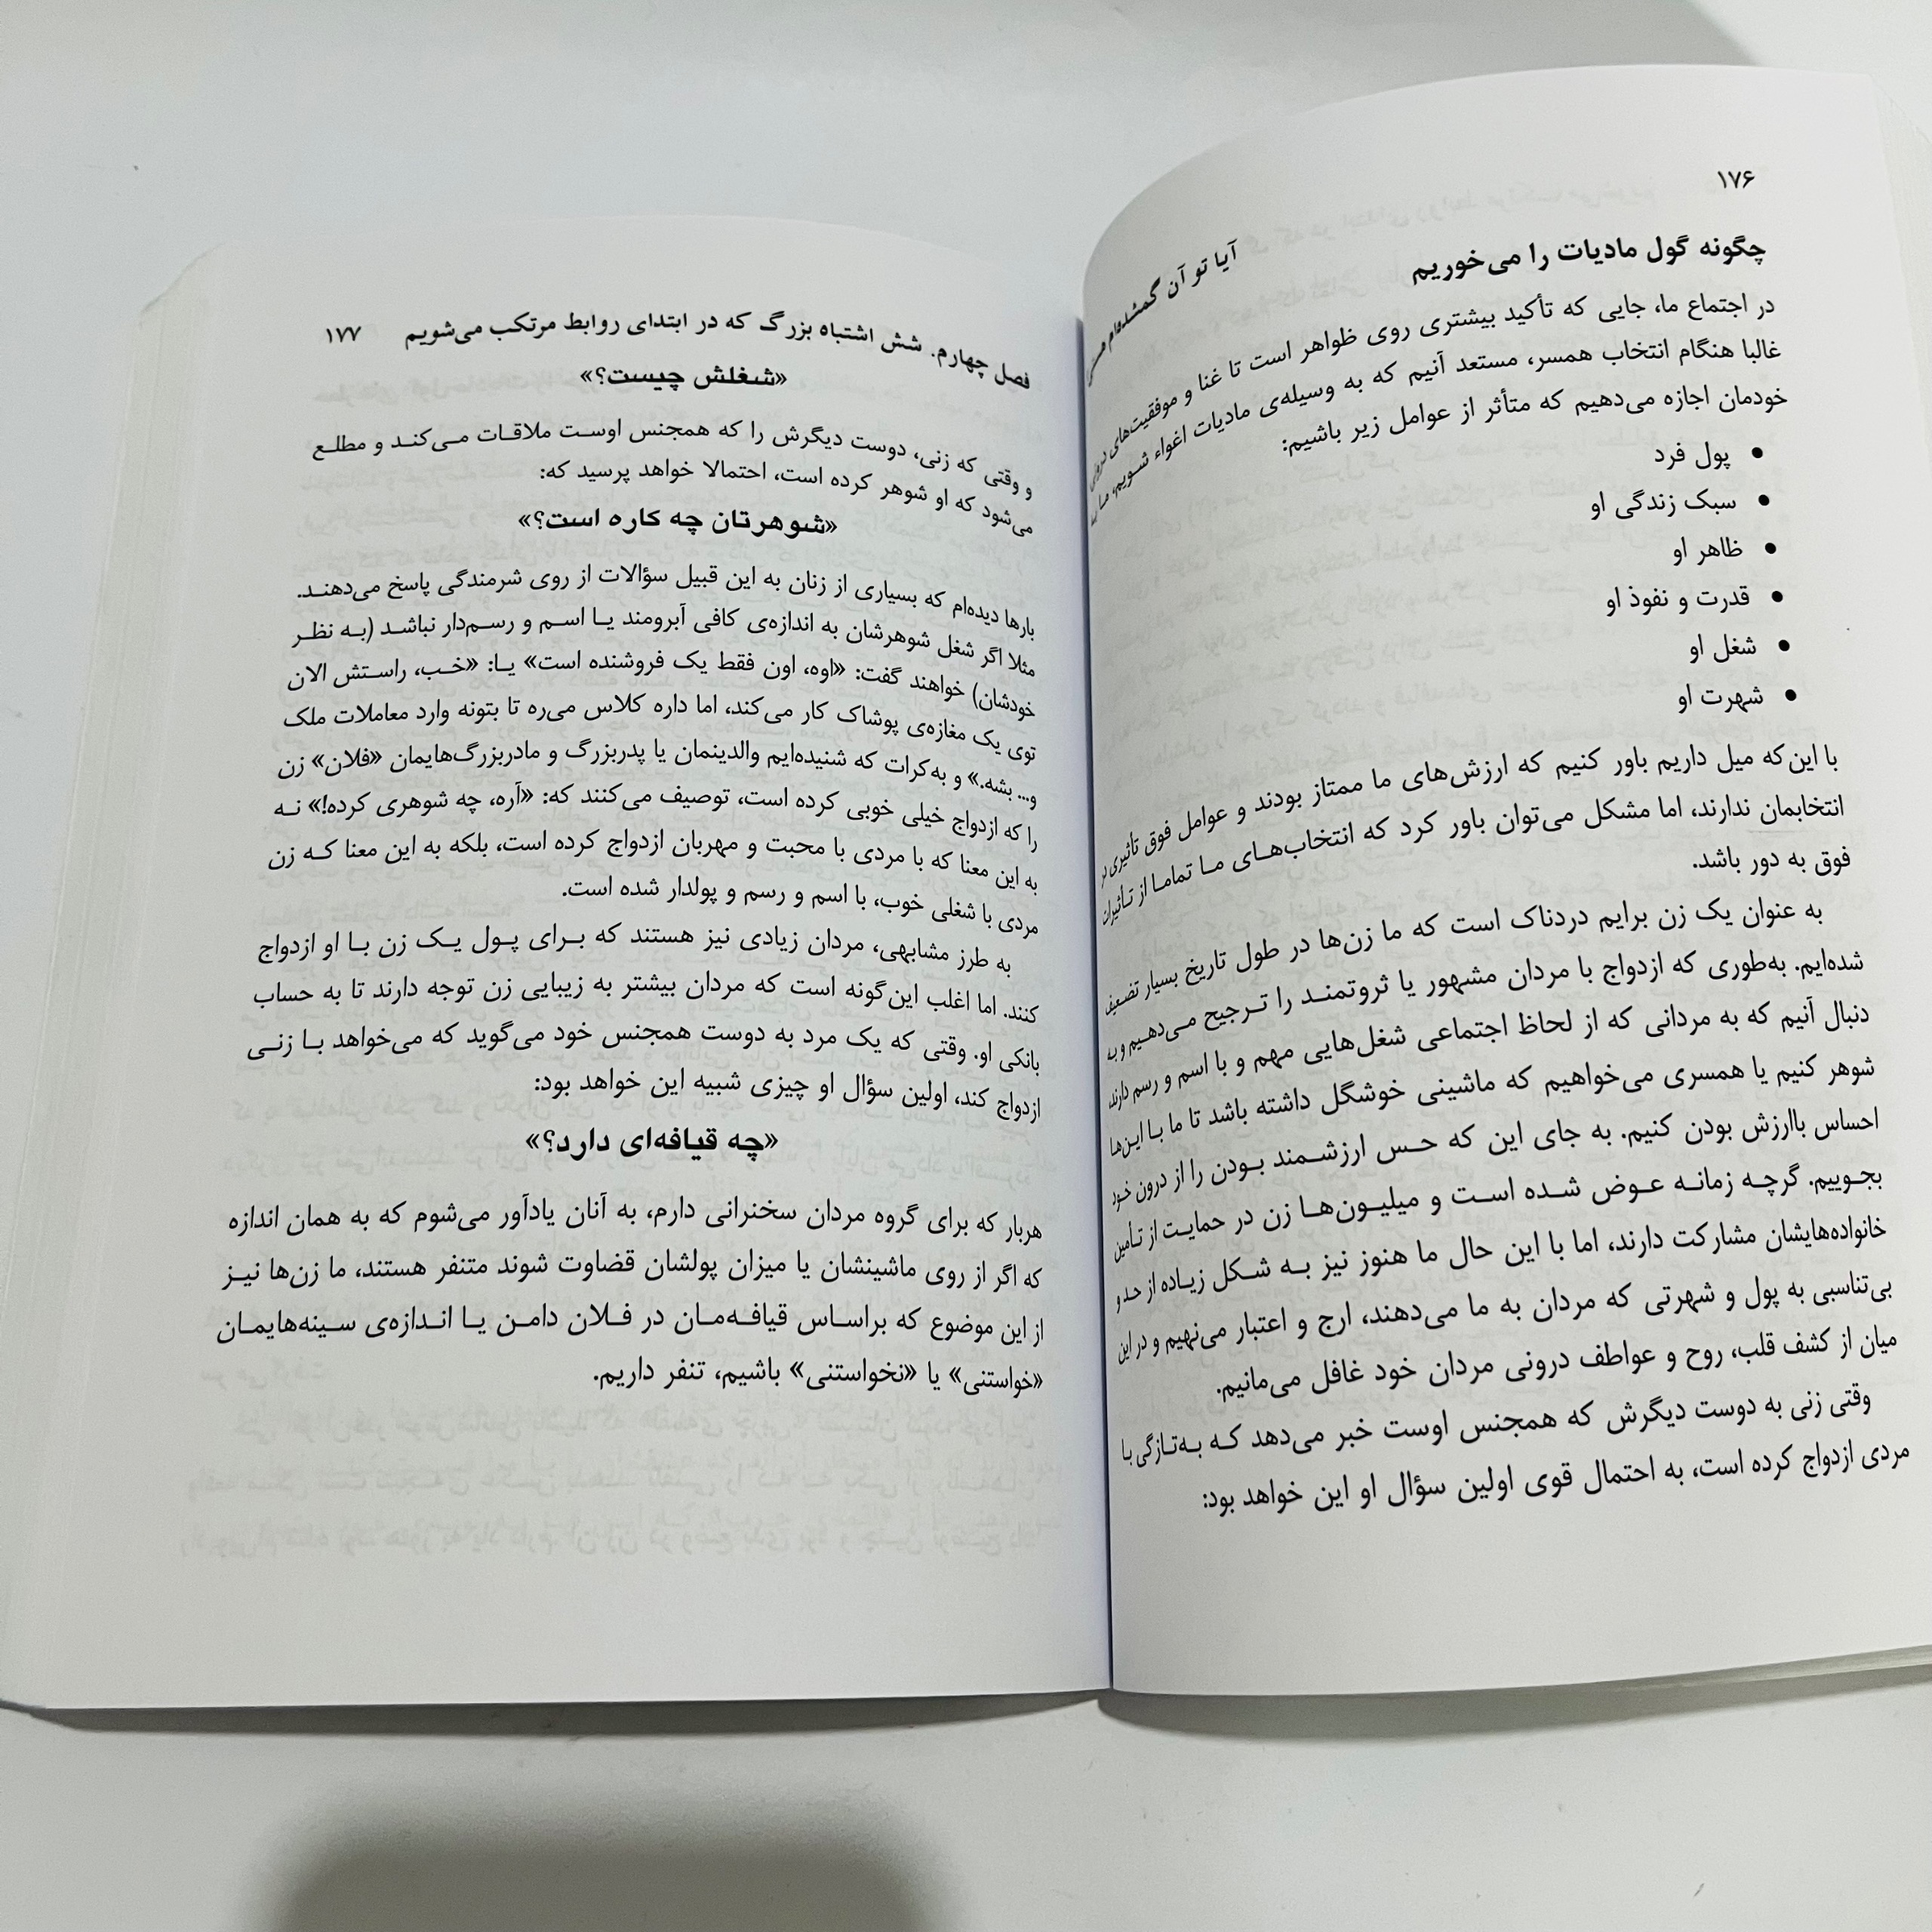 ۱۷۶
آیا تو آن گمشده‌ام هستی
چگونه گول مادیات را می‌خوریم
در اجتماع ما، جایی که تأکید بیشتری روی ظواهر است تا غنا و موفقیت‌های درونی
غالبا هنگام انتخاب همسر، مستعد آنیم که به وسیله‌ی مادیات اغواء شویم، ما به
خودمان اجازه می‌دهیم که متأثر از عوامل زیر باشیم:
• پول فرد
• سبک زندگی او
• ظاهر او
• قدرت و نفوذ او
• شغل او
• شهرت او
با این‌که میل داریم باور کنیم که ارزش‌های ما ممتاز بودند و عوامل فوق تأثیری بر
انتخابمان ندارند، اما مشکل می‌توان باور کرد که انتخاب‌های ما تماما از تأثیرات
فوق به دور باشد.
به عنوان یک زن برایم دردناک است که ما زن‌ها در طول تاریخ بسیار تضعیف
شده‌ایم. به‌طوری که ازدواج با مردان مشهور یا ثروتمند را ترجیح می‌دهیم و به
دنبال آنیم که به مردانی که از لحاظ اجتماعی شغل‌هایی مهم و با اسم و رسم دارند،
شوهر کنیم یا همسری می‌خواهیم که ماشینی خوشگل داشته باشد تا ما با این‌ها
احساس باارزش بودن کنیم. به جای این که حس ارزشمند بودن را از درون خود
بجوییم. گرچه زمانه عوض شده است و میلیون‌ها زن در حمایت از تأمین
خانواده‌هایشان مشارکت دارند، اما با این حال ما هنوز نیز به شکل زیاده از حد و
بی‌تناسبی به پول و شهرتی که مردان به ما می‌دهند، ارج و اعتبار می‌نهیم و در این
میان از کشف قلب، روح و عواطف درونی مردان خود غافل می‌مانیم.
وقتی زنی به دوست دیگرش که همجنس اوست خبر می‌دهد که به‌تازگی با
مردی ازدواج کرده است، به احتمال قوی اولین سؤال او این خواهد بود:
فصل چهارم. شش اشتباه بزرگ که در ابتدای روابط مرتکب می‌شویم ۱۷۷
«شغلش چیست؟»
و وقتی که زنی، دوست دیگرش را که همجنس اوست ملاقات می‌کند و مطلع
می‌شود که او شوهر کرده است، احتمالا خواهد پرسید که:
«شوهرتان چه کاره است؟»
بارها دیده‌ام که بسیاری از زنان به این قبیل سؤالات از روی شرمندگی پاسخ می‌دهند.
مثلا اگر شغل شوهرشان به اندازه‌ی کافی آبرومند یا اسم و رسم‌دار نباشد (به نظر
خودشان) خواهند گفت: «اوه، اون فقط یک فروشنده است» یا: «خب، راستش الان
توی یک مغازه‌ی پوشاک کار می‌کند، اما داره کلاس می‌ره تا بتونه وارد معاملات ملک
و... بشه.» و به‌کرات که شنیده‌ایم والدینمان یا پدربزرگ و مادربزرگ‌هایمان «فلان» زن
را که ازدواج خیلی خوبی کرده است، توصیف می‌کنند که: «آره، چه شوهری کرده!» نه
به این معنا که با مردی با محبت و مهربان ازدواج کرده است، بلکه به این معنا که زن
مردی با شغلی خوب، با اسم و رسم و پولدار شده است.
به طرز مشابهی، مردان زیادی نیز هستند که برای پول یک زن با او ازدواج
کنند. اما اغلب این‌گونه است که مردان بیشتر به زیبایی زن توجه دارند تا به حساب
بانکی او. وقتی که یک مرد به دوست همجنس خود می‌گوید که می‌خواهد با زنی
ازدواج کند، اولین سؤال او چیزی شبیه این خواهد بود:
«چه قیافه‌ای دارد؟»
هربار که برای گروه مردان سخنرانی دارم، به آنان یادآور می‌شوم که به همان اندازه
که اگر از روی ماشینشان یا میزان پولشان قضاوت شوند متنفر هستند، ما زن‌ها نیز
از این موضوع که براساس قیافه‌مان در فلان دامن یا اندازه‌ی سینه‌هایمان
«خواستنی» یا «نخواستنی» باشیم، تنفر داریم.